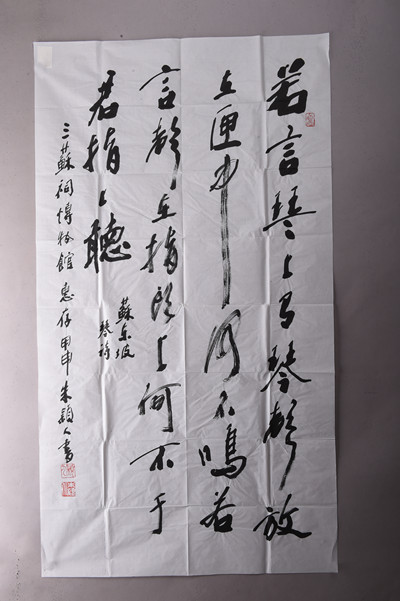 若言琴上有琴聲放
在匣中何不鳴若
言聲在指頭上何不于
君指上聽
蘇東坡
琴詩
三蘇祠博物館惠存甲申朱穎人書